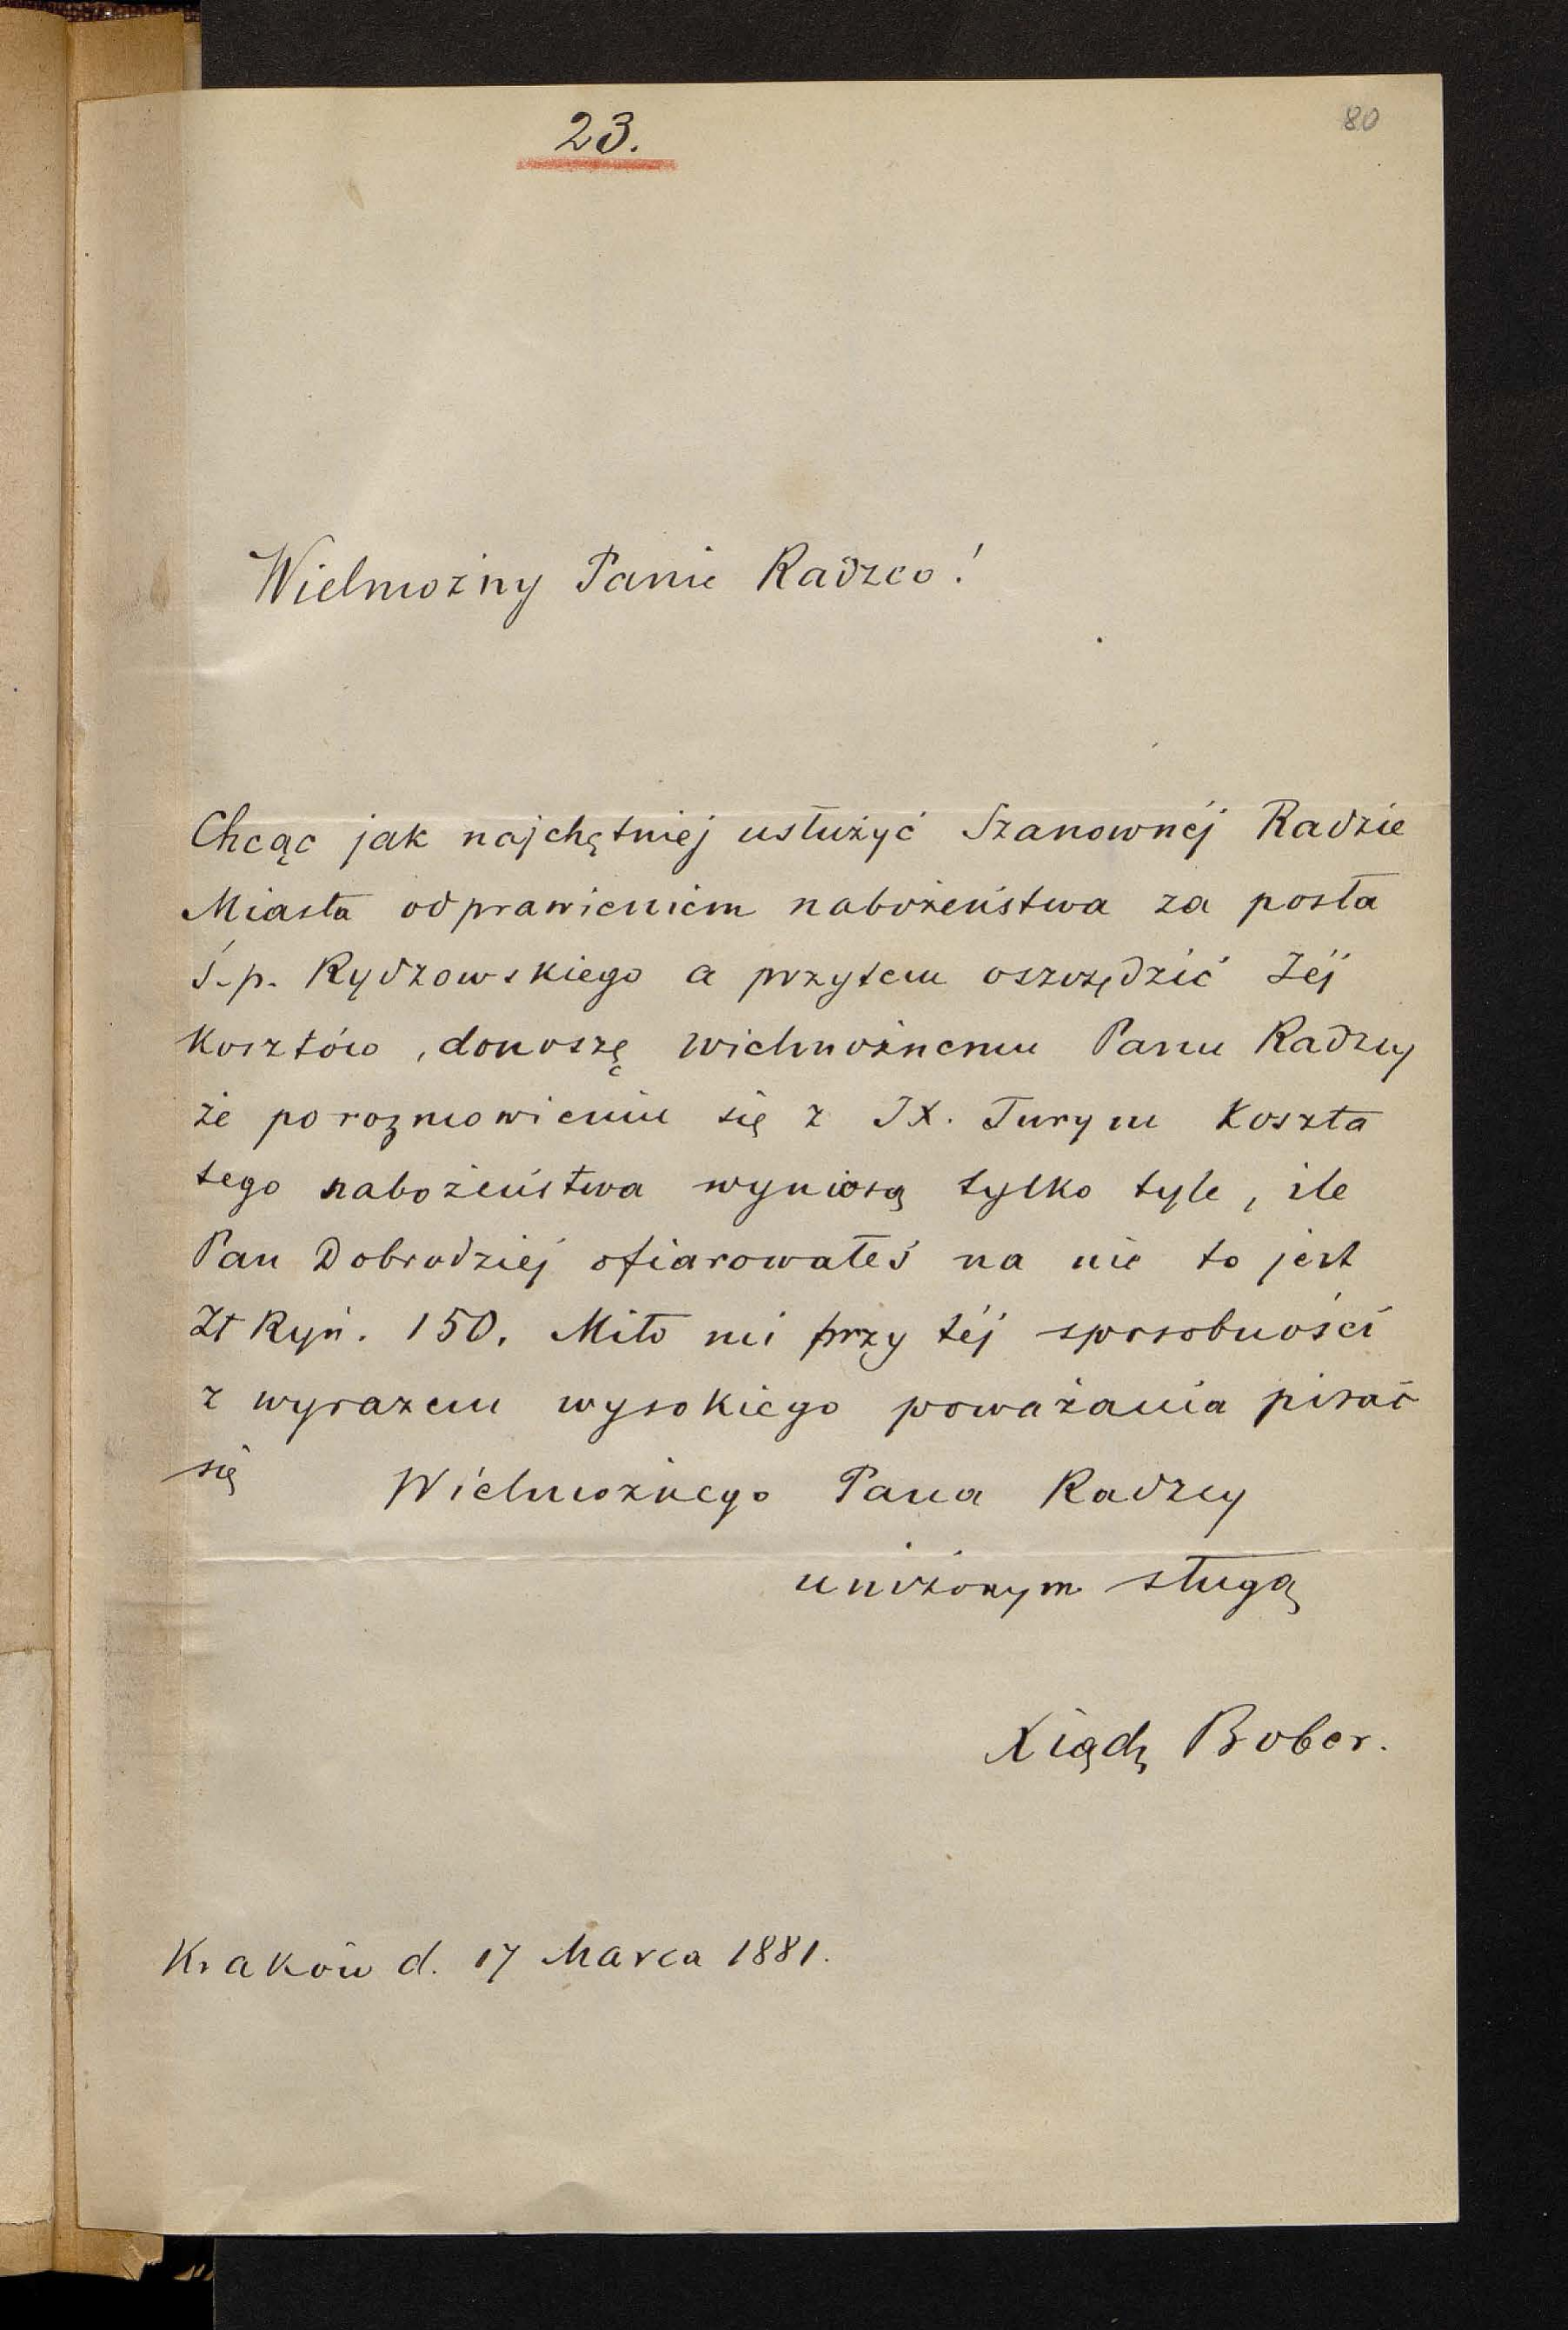 23.
80
Wielmożny Panie Radzco!
Chcąc jak najchętniej usłużyć Szanownéj Radzie
Miasta odprawieniem nabożeństwa za posła
ś.p. Rydzowskiego a przytem oszczędzić Jéj
kosztów, donoszę wielmożnemu Panu Radzcy
że po rozmowieniu się z JX. Turym koszta
tego nabożeństwa wyniosą tylko tyle, ile
Pan Dobrodziej ofiarowałeś na nie to jest
Zł Ryń. 150. Miło mi przy téj sposobności
z wyrazem wysokiego poważania pisać
się Wielmożnego Pana Radzcy
uniżonym sługą
Xiądz Bober.
Kraków d. 17 Marca 1881.